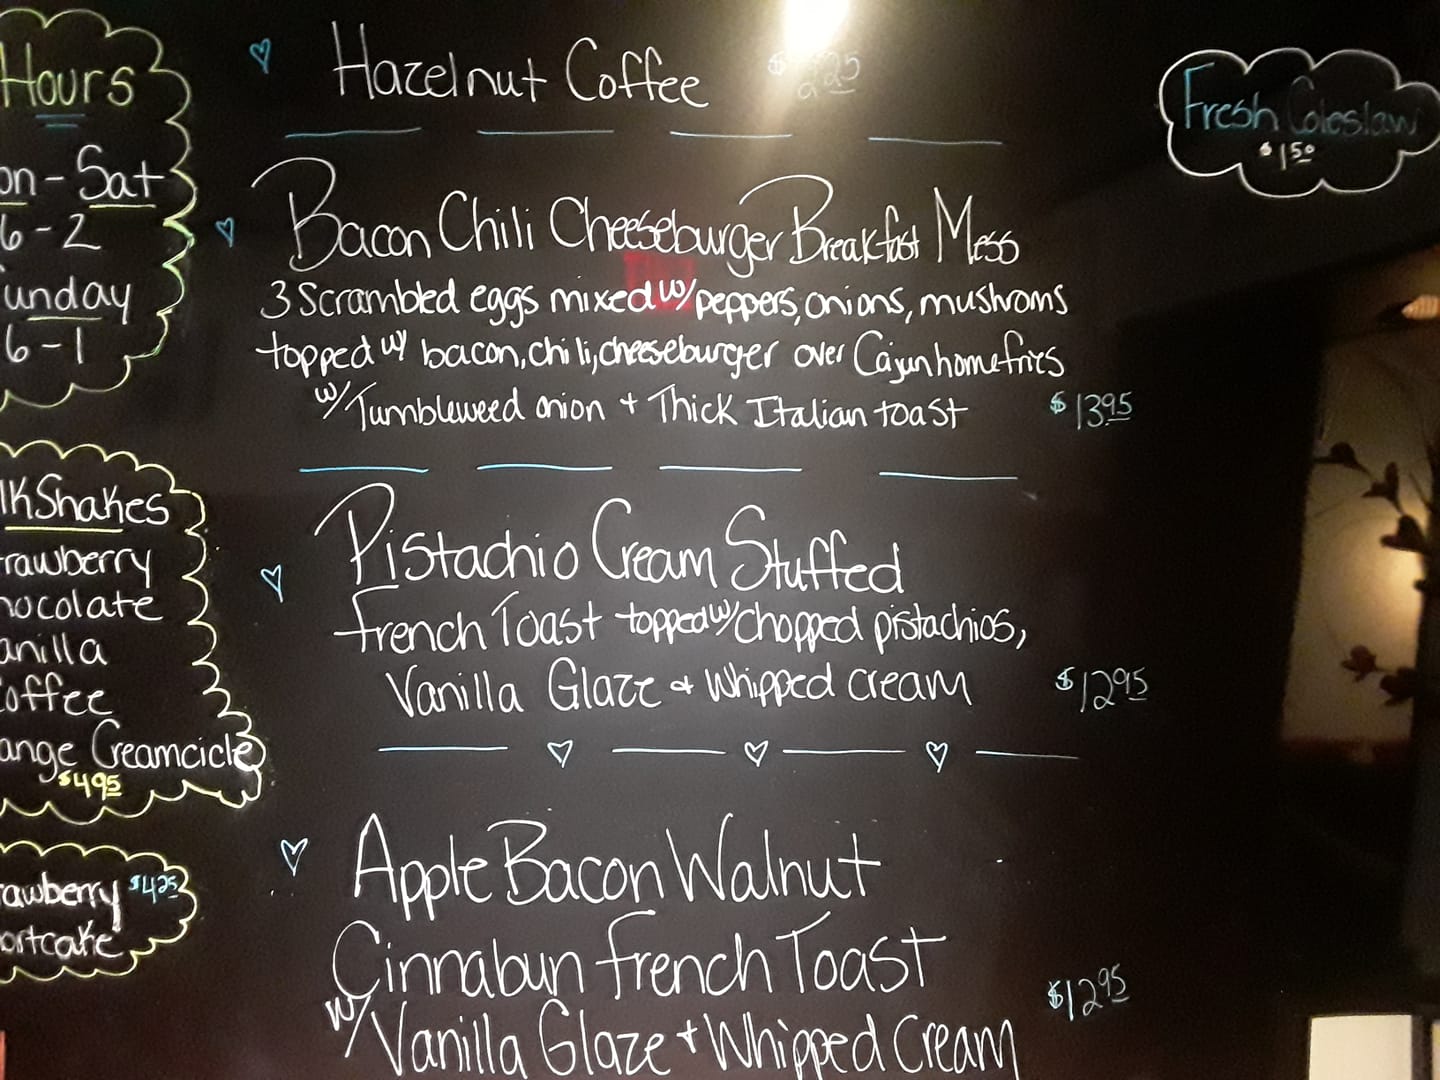 Hours
on-Sat
6-2
unday
6-1
lKShakes
rawberry
hocolate
anilla
offee
ange Creamcicle
$4.95
awberry $4.25
ortcake
Hazelnut Coffee $2.25
Bacon Chili Cheeseburger Breakfast Mess
3 Scrambled eggs mixed w/ peppers, onions, mushroms
topped w/ bacon, chili, cheeseburger over Cajun homefries
w/ Tumbleweed onion + Thick Italian toast $13.95
Pistachio Cream Stuffed
French Toast topped w/ chopped pistachios,
Vanilla Glaze + Whipped cream $12.95
Apple Bacon Walnut
Cinnabun French Toast
w/ Vanilla Glaze + Whipped Cream $12.95
Fresh Coleslaw
$1.50